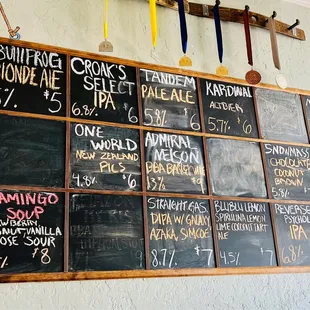 BULLFROG
BLONDE ALE
5% 5
CROAK'S
SELECT
IPA
6.8% 6
TANDEM
PALE ALE
5.8% 6
KARDINAL
ALTBIER
5.7% 6
5.8%
ONE WORLD
NEW ZEALAND
PILS
4.8% 6
ADMIRAL
NELSON
BBA
13% 7
CHOCOLATE
COCONUT
BROWN
FLAMINGO
SOUP
STRAWBERRY
VANILLA
GOSE SOUR
8
STRAIGHT GNAR
DIPA W/ GNARLY
AZAKA, SIMCOE
8.7% 7
BLU BLU LEMON
SPIRULINA LEMON
LIME COCONUT TART
NE
4.5% 7
REVERSE
PSYCHOL
IPA
6.8%